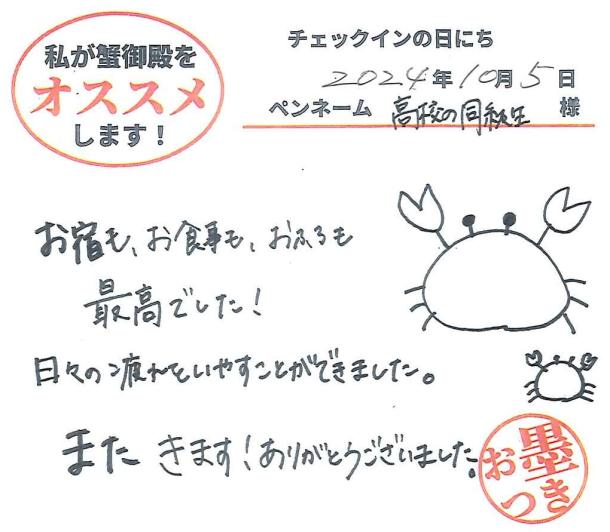 私が蟹御殿を
オススメ
します！
チェックインの日にち
2024年10月5日
ペンネーム 高校の同級生 様
お宿も、お食事も、おふろも
最高でした！
日々の疲れをいやすことができました。
また きます！ありがとうございました。
お墨つき